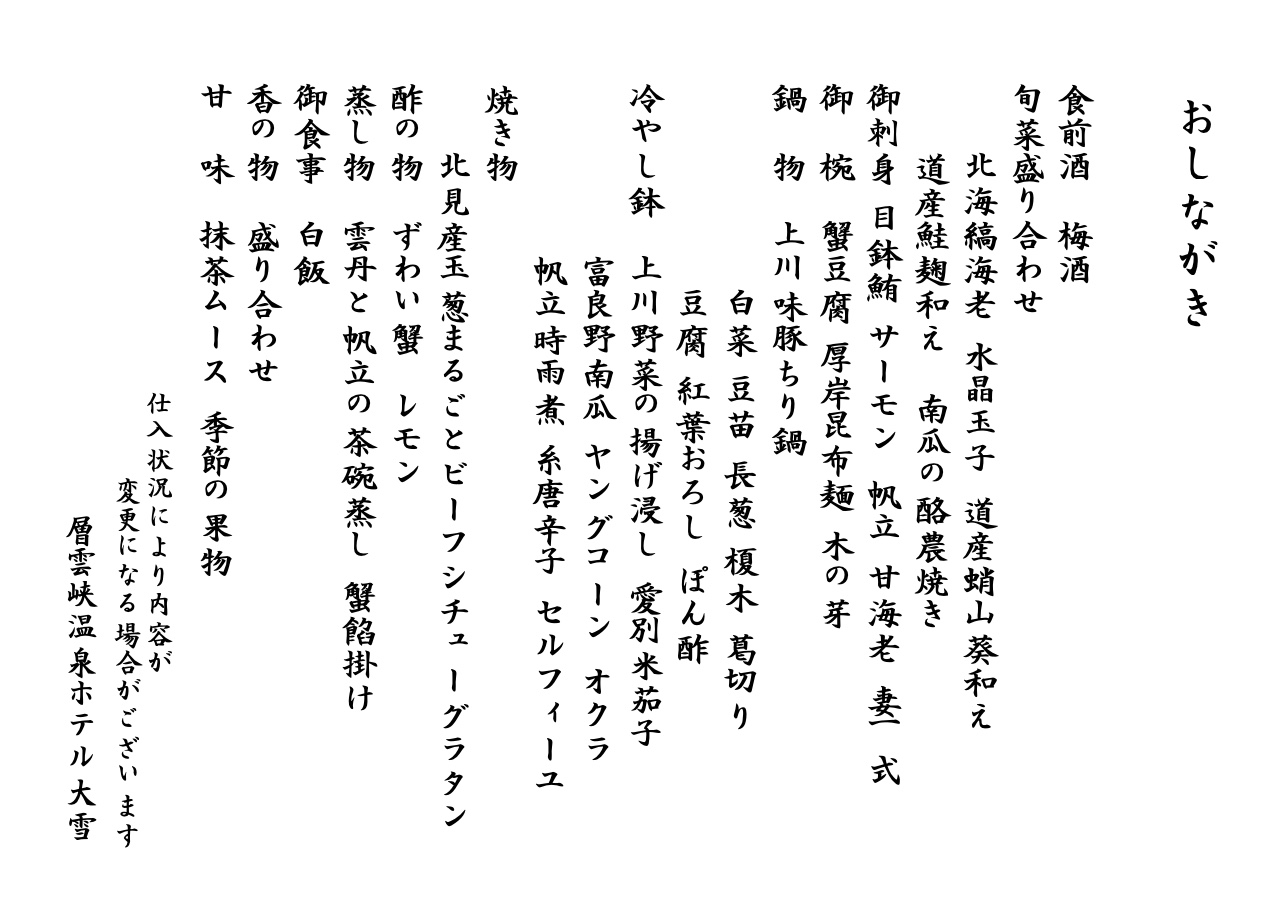 おしながき
食前酒　梅酒
旬菜盛り合わせ
北海縞海老　水晶玉子　道産蛸山葵和え
道産鮭麹和え　南瓜の酪農焼き
御刺身　目鉢鮪　サーモン　帆立　甘海老　妻一式
御椀　蟹豆腐　厚岸昆布麺　木の芽
鍋物　上川味豚ちり鍋
白菜　豆苗　長葱　榎木　葛切り
豆腐　紅葉おろし　ぽん酢
冷やし鉢　上川野菜の揚げ浸し　愛別米茄子
富良野南瓜　ヤングコーン　オクラ
帆立時雨煮　糸唐辛子　セルフィーユ
焼き物
北見産玉葱まるごとビーフシチューグラタン
酢の物　ずわい蟹　レモン
蒸し物　雲丹と帆立の茶碗蒸し　蟹餡掛け
御食事　白飯
香の物　盛り合わせ
甘味　抹茶ムース　季節の果物
仕入状況により内容が
変更になる場合がございます
層雲峡温泉ホテル大雪